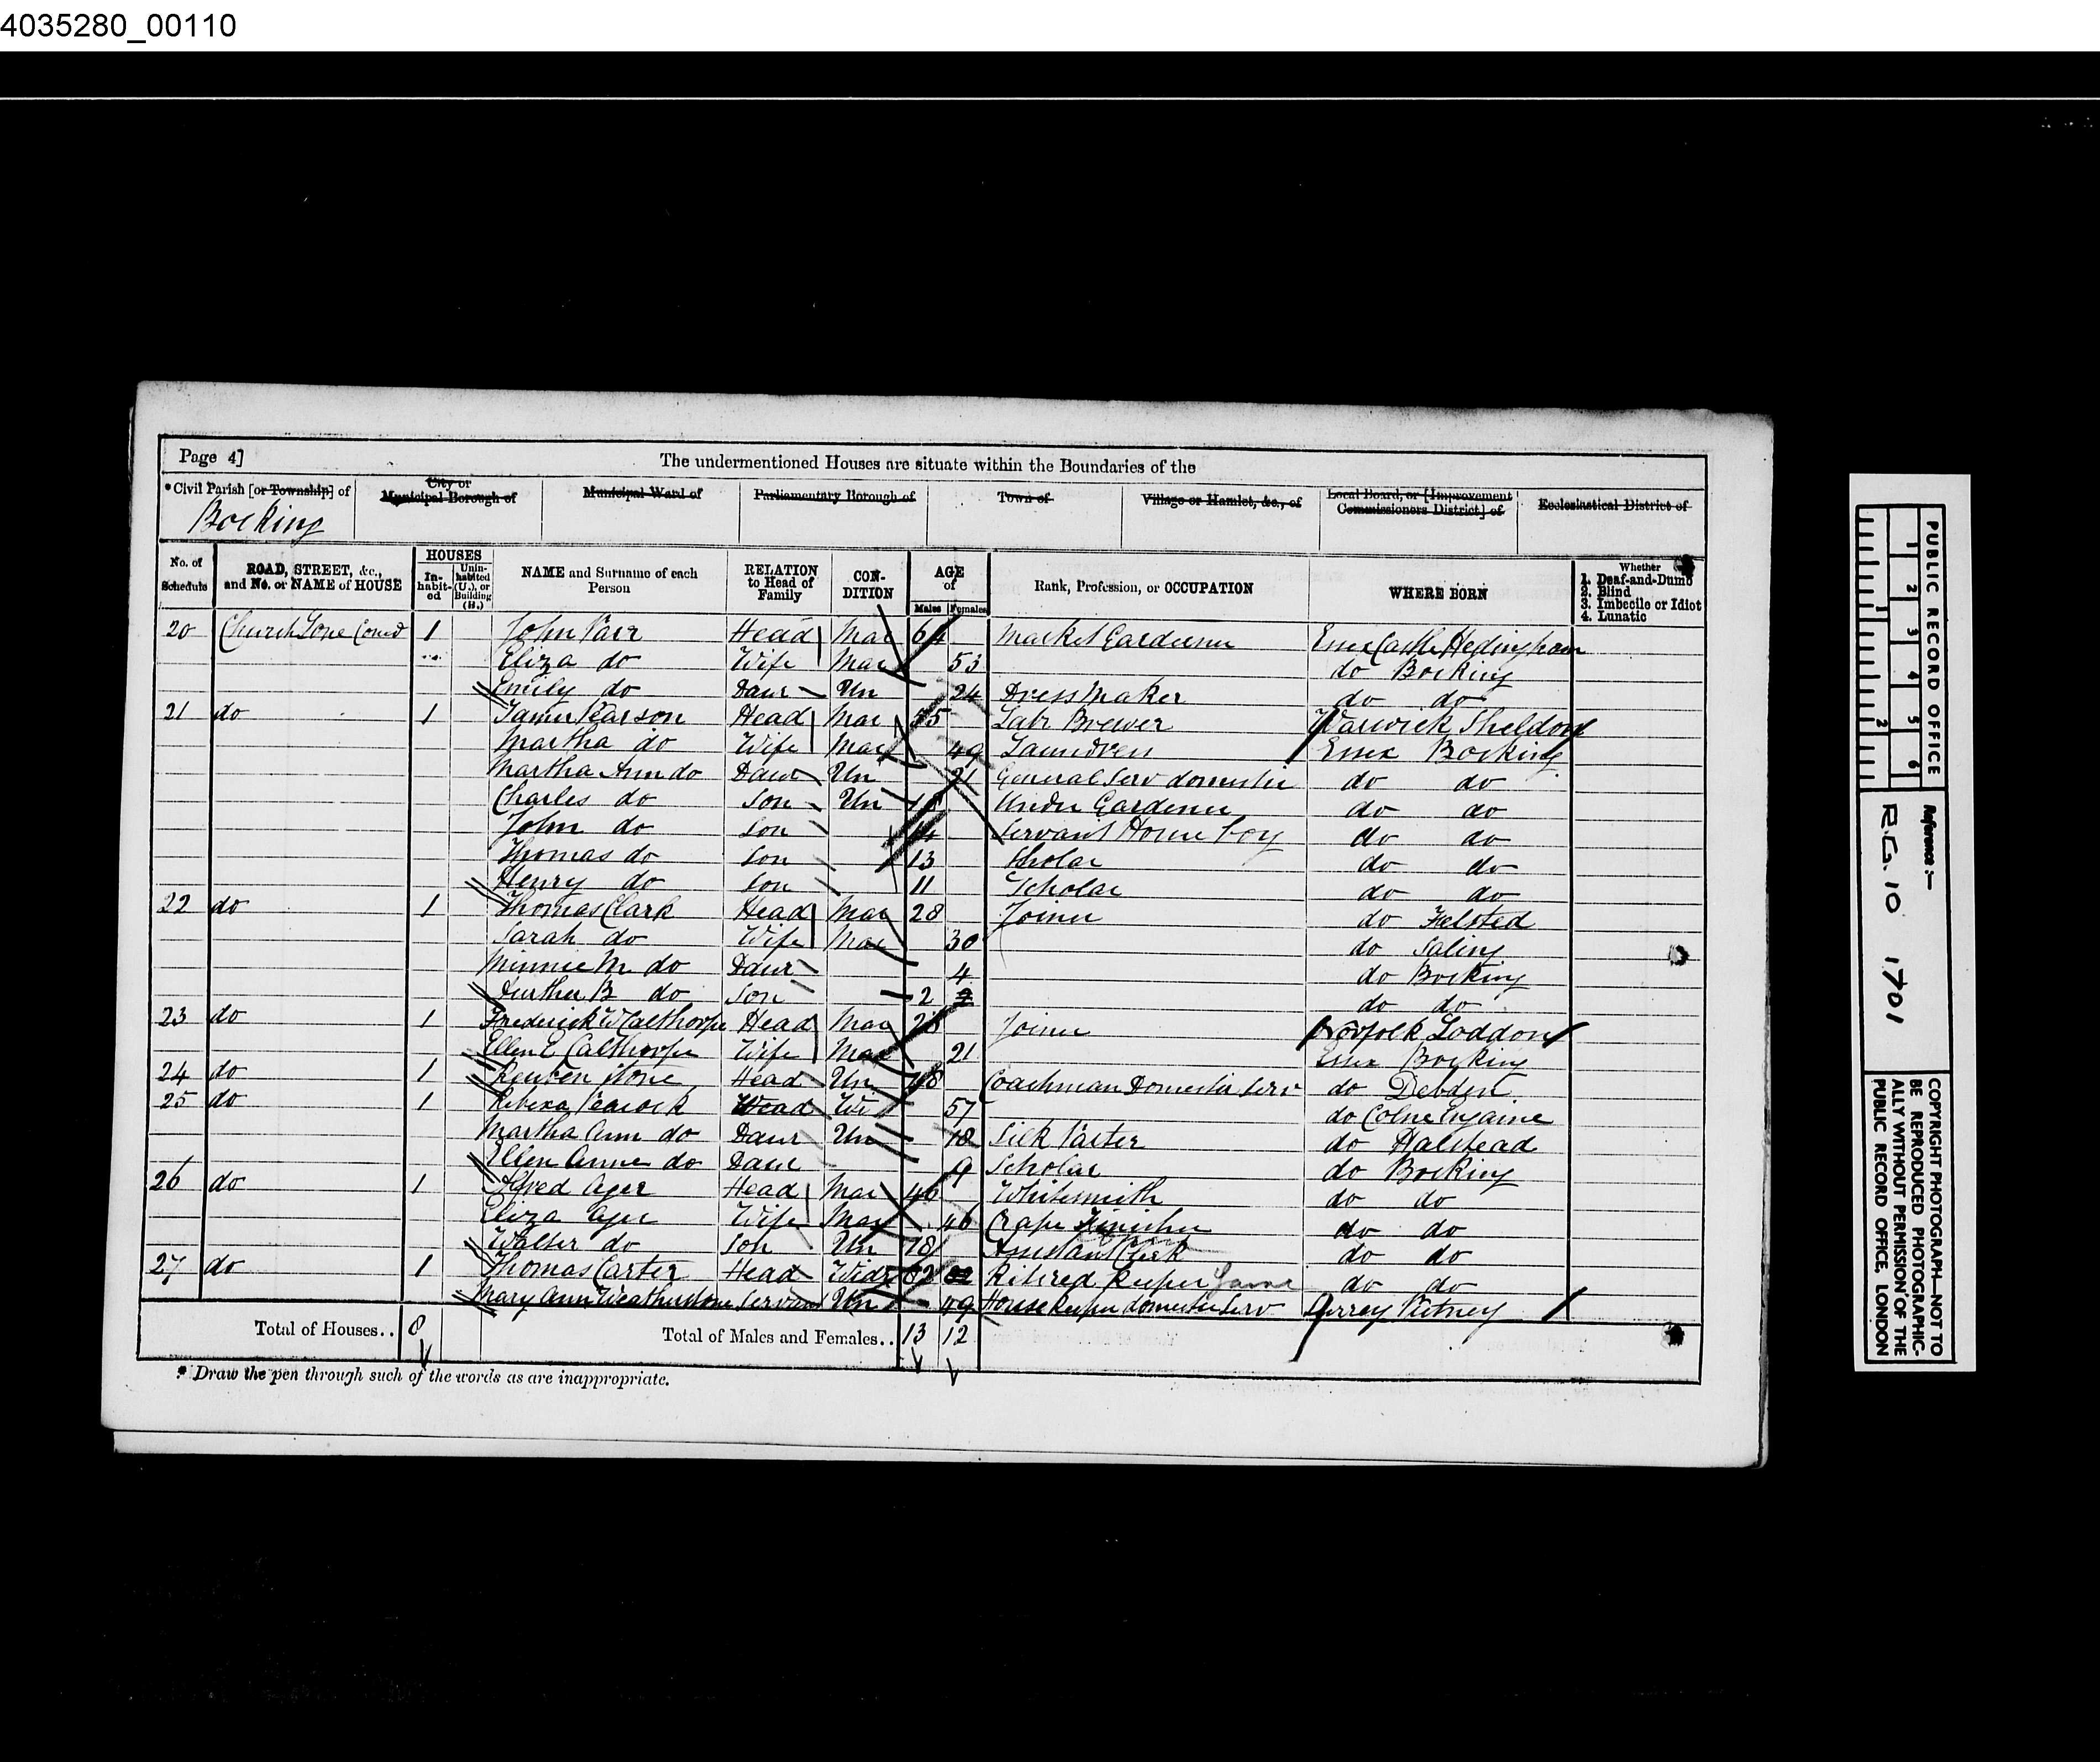 4035280_00110
Page 4]
The undermentioned Houses are situate within the Boundaries of the
*Civil Parish [or Township] of
City or Municipal Borough of
Municipal Ward of
Parliamentary Borough of
Town of
Village or Hamlet, &c., of
Local Board, or [Improvement Commissioners District] of
Ecclesiastical District of
Bocking
No. of Schedule
ROAD, STREET, &c., and No. or NAME of HOUSE
HOUSES
In-habit-ed
Unin-habited (U.), or Building (B.)
NAME and Surname of each Person
RELATION to Head of Family
CON-DITION
AGE of
Males
Females
Rank, Profession, or OCCUPATION
WHERE BORN
Whether
1. Deaf-and-Dumb
2. Blind
3. Imbecile or Idiot
4. Lunatic
20 Church 1 John Parr Head Mar 64 Market Gardener Essex Castle Hedingham
Eliza do Wife Mar 53 do Bocking
Emily do Daur Un 24 Dress Maker do do
21 do 1 James Pearson Head Mar 55 Labr Brewer Warwick Sheldon
Martha do Wife Mar 49 Laundress Essex Bocking
Martha Ann do Daur Un 21 General Serv domestic do do
Charles do Son Un 18 Under Gardener do do
John do Son 14 Servant House boy do do
Thomas do Son 13 Scholar do do
Henry do Son 11 Scholar do do
22 do 1 Thomas Clark Head Mar 28 Joiner do Felsted
Sarah do Wife Mar 30 do Saling
Minnie M. do Daur 4 do Bocking
Arthur B do Son 2 2 do do
23 do 1 Frederick W Calthorpe Head Mar 28 Joiner Norfolk Loddon
Ellen E Calthorpe Wife Mar 21 Essex Bocking
24 do 1 Reuben Stone Head Un Coachman Domestic Serv do Debden
25 do 1 Rebexa Peacock Head Wi 57 do Colne Engaine
Martha Ann do Daur Un 18 Silk do Halstead
Ellen Anne do Daur 9 Scholar do Bocking
26 do 1 Alfred Ager Head Mar 46 Whitesmith do do
Eliza Ager Wife Mar 46 Crape Finisher do do
Walter do Son Un 18 Assistant Clerk do do
27 do 1 Thomas Carter Head Widr 82 82 Retired Keeper Game do do
Mary Ann Weatherstone Servant Un 49 House Keeper domestic Serv Surrey Putney
Total of Houses.. 8
Total of Males and Females.. 13 12
* Draw the pen through such of the words as are inappropriate.
PUBLIC RECORD OFFICE
1 2 3 4 5 6
1 2
Reference :-
R.G. 10 1701
COPYRIGHT PHOTOGRAPH—NOT TO
BE REPRODUCED PHOTOGRAPHIC-
ALLY WITHOUT PERMISSION OF THE
PUBLIC RECORD OFFICE, LONDON